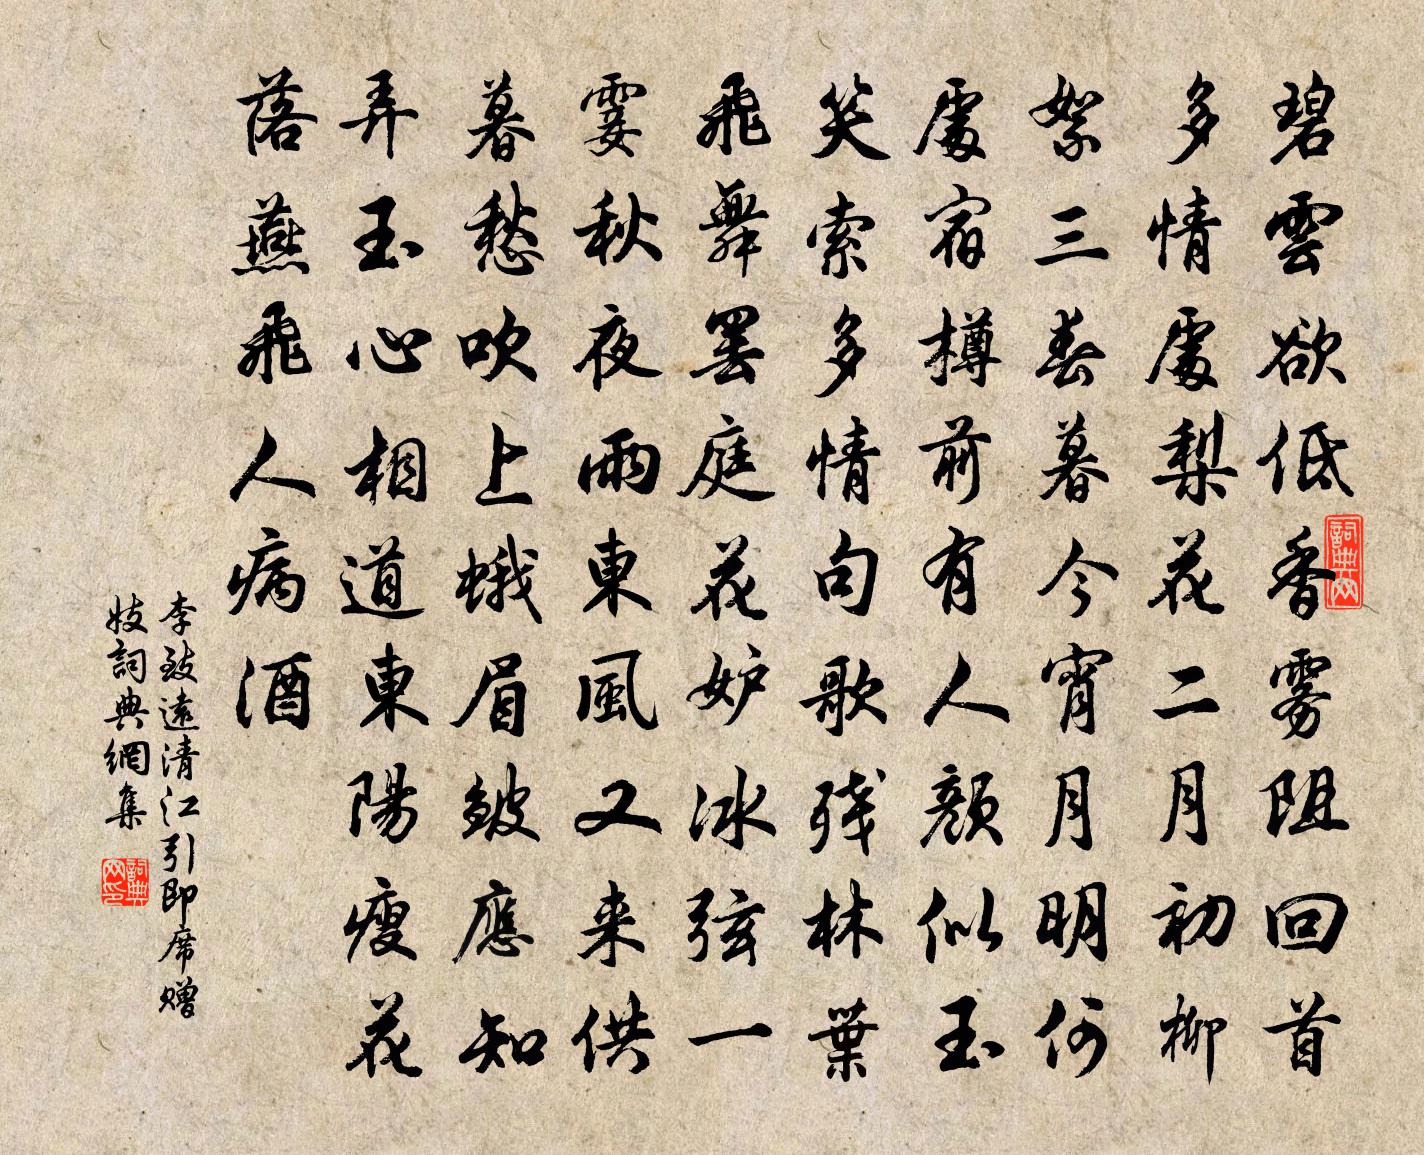 碧雲欲低香雾阻回首
多情處梨花二月初柳
絮三春暮今宵月明何
處宿樽前有人顏似玉
笑索多情句歌残林葉
飛舞罢庭花妒冰弦一
霎秋夜雨東風又来供
暮愁吹上蛾眉皱應知
弄玉心相道東陽瘦花
落燕飛人病酒
李致遠清江引即席赠
妓詞典網集
詞典网
詞典网印